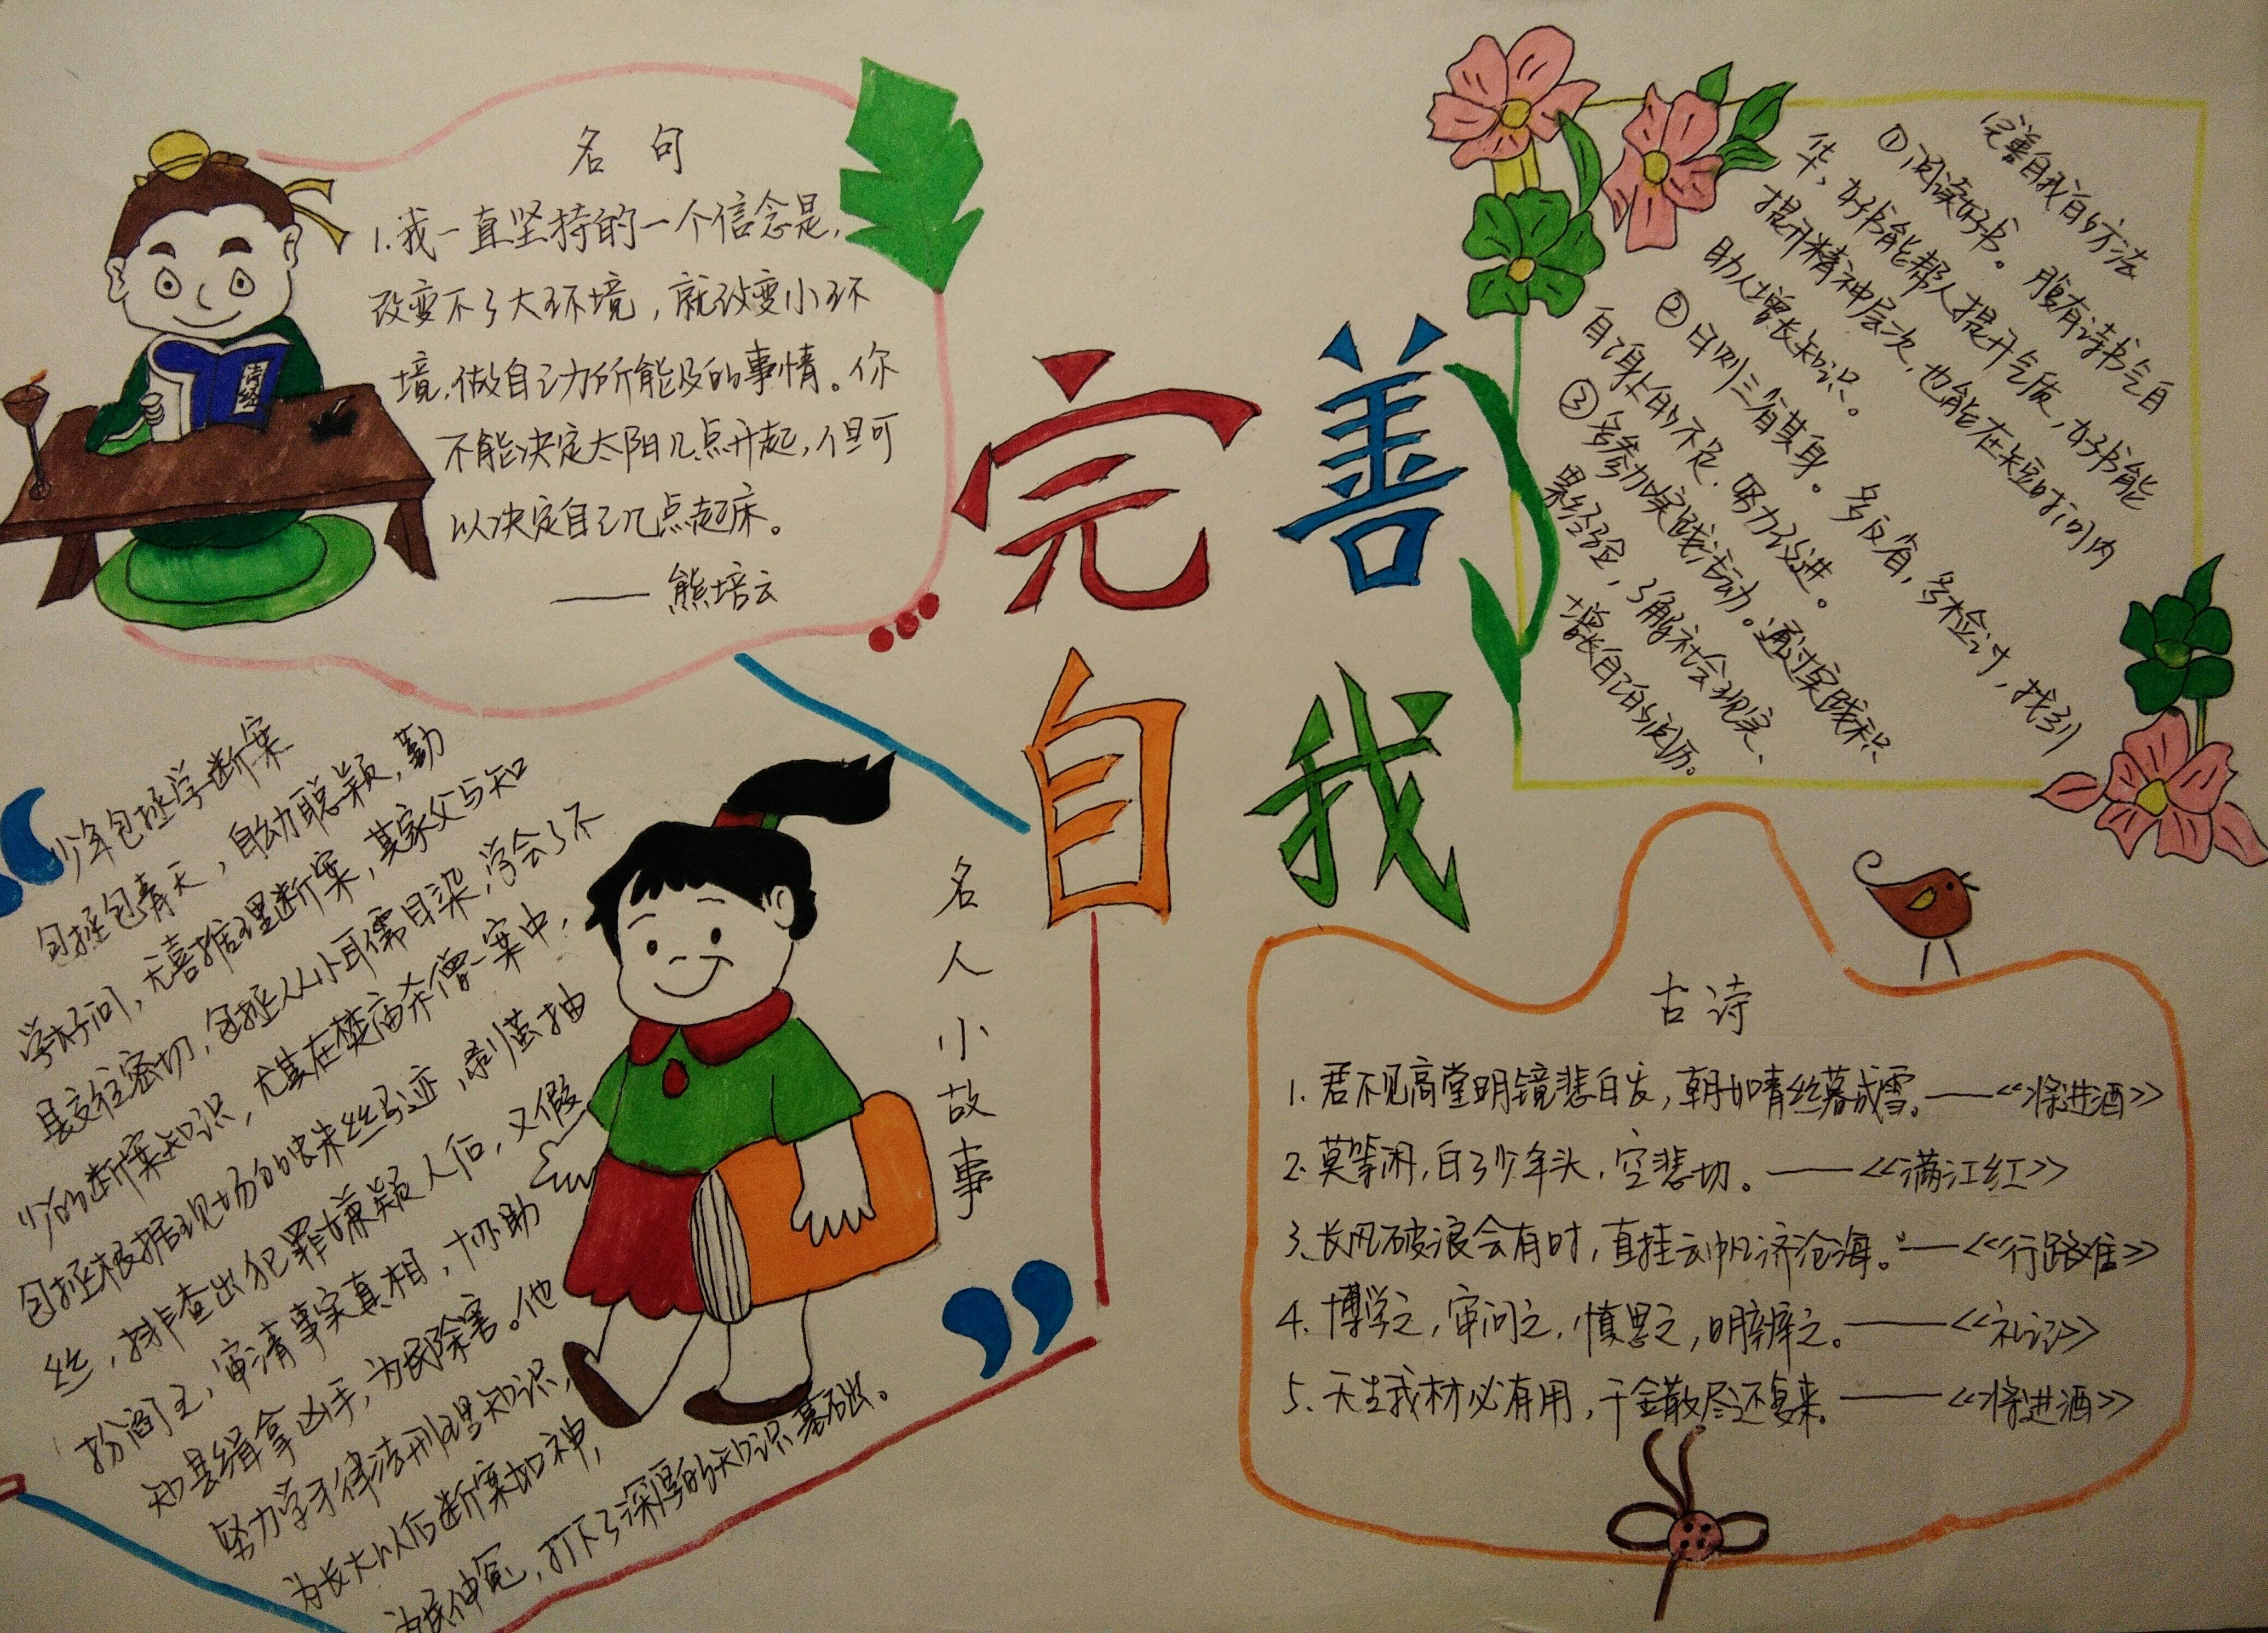 完善
自我
名句
1.我一直坚持的一个信念是,
改变不了大环境,就改变小环
境,做自己力所能及的事情。你
不能决定太阳几点升起,但可
以决定自己几点起床。
——熊培云
诗经
完善自我的方法
①阅读好书。腹有诗书气自
华,好书能帮人提升气质,好书能
提升精神层次,也能在短时间内
助人增长知识。
②日则三省其身。多反省,多检讨,找到
自己身长的不足,努力改进。
③多参加实践活动。通过实践积
累经验,了解社会现实、
增长自己的阅历。
名人小故事
少年包拯学断案
包拯包青天,自幼聪颖,勤
学好问,尤喜推理断案,其家父与知
县交往密切,包拯从小耳儒目染,学会了不
少的断案知识,尤其在焚庙杀僧一案中,
包拯根据现场的蛛丝马迹,剥茧抽
丝,排查出犯罪嫌疑人后,又假
扮阎王,审清事实真相,协助
知县缉拿凶手,为民除害。他
努力学习律法刑理知识,
为长大以后断案如神,
为民伸冤,打下了深厚的知识基础。
古诗
1.君不见高堂明镜悲白发,朝如青丝暮成雪。——《将进酒》
2.莫等闲,白了少年头,空悲切。——《满江红》
3.长风破浪会有时,直挂云帆济沧海。——《行路难》
4.博学之,审问之,慎思之,明辨之。——《礼记》
5.天生我材必有用,千金散尽还复来。——《将进酒》